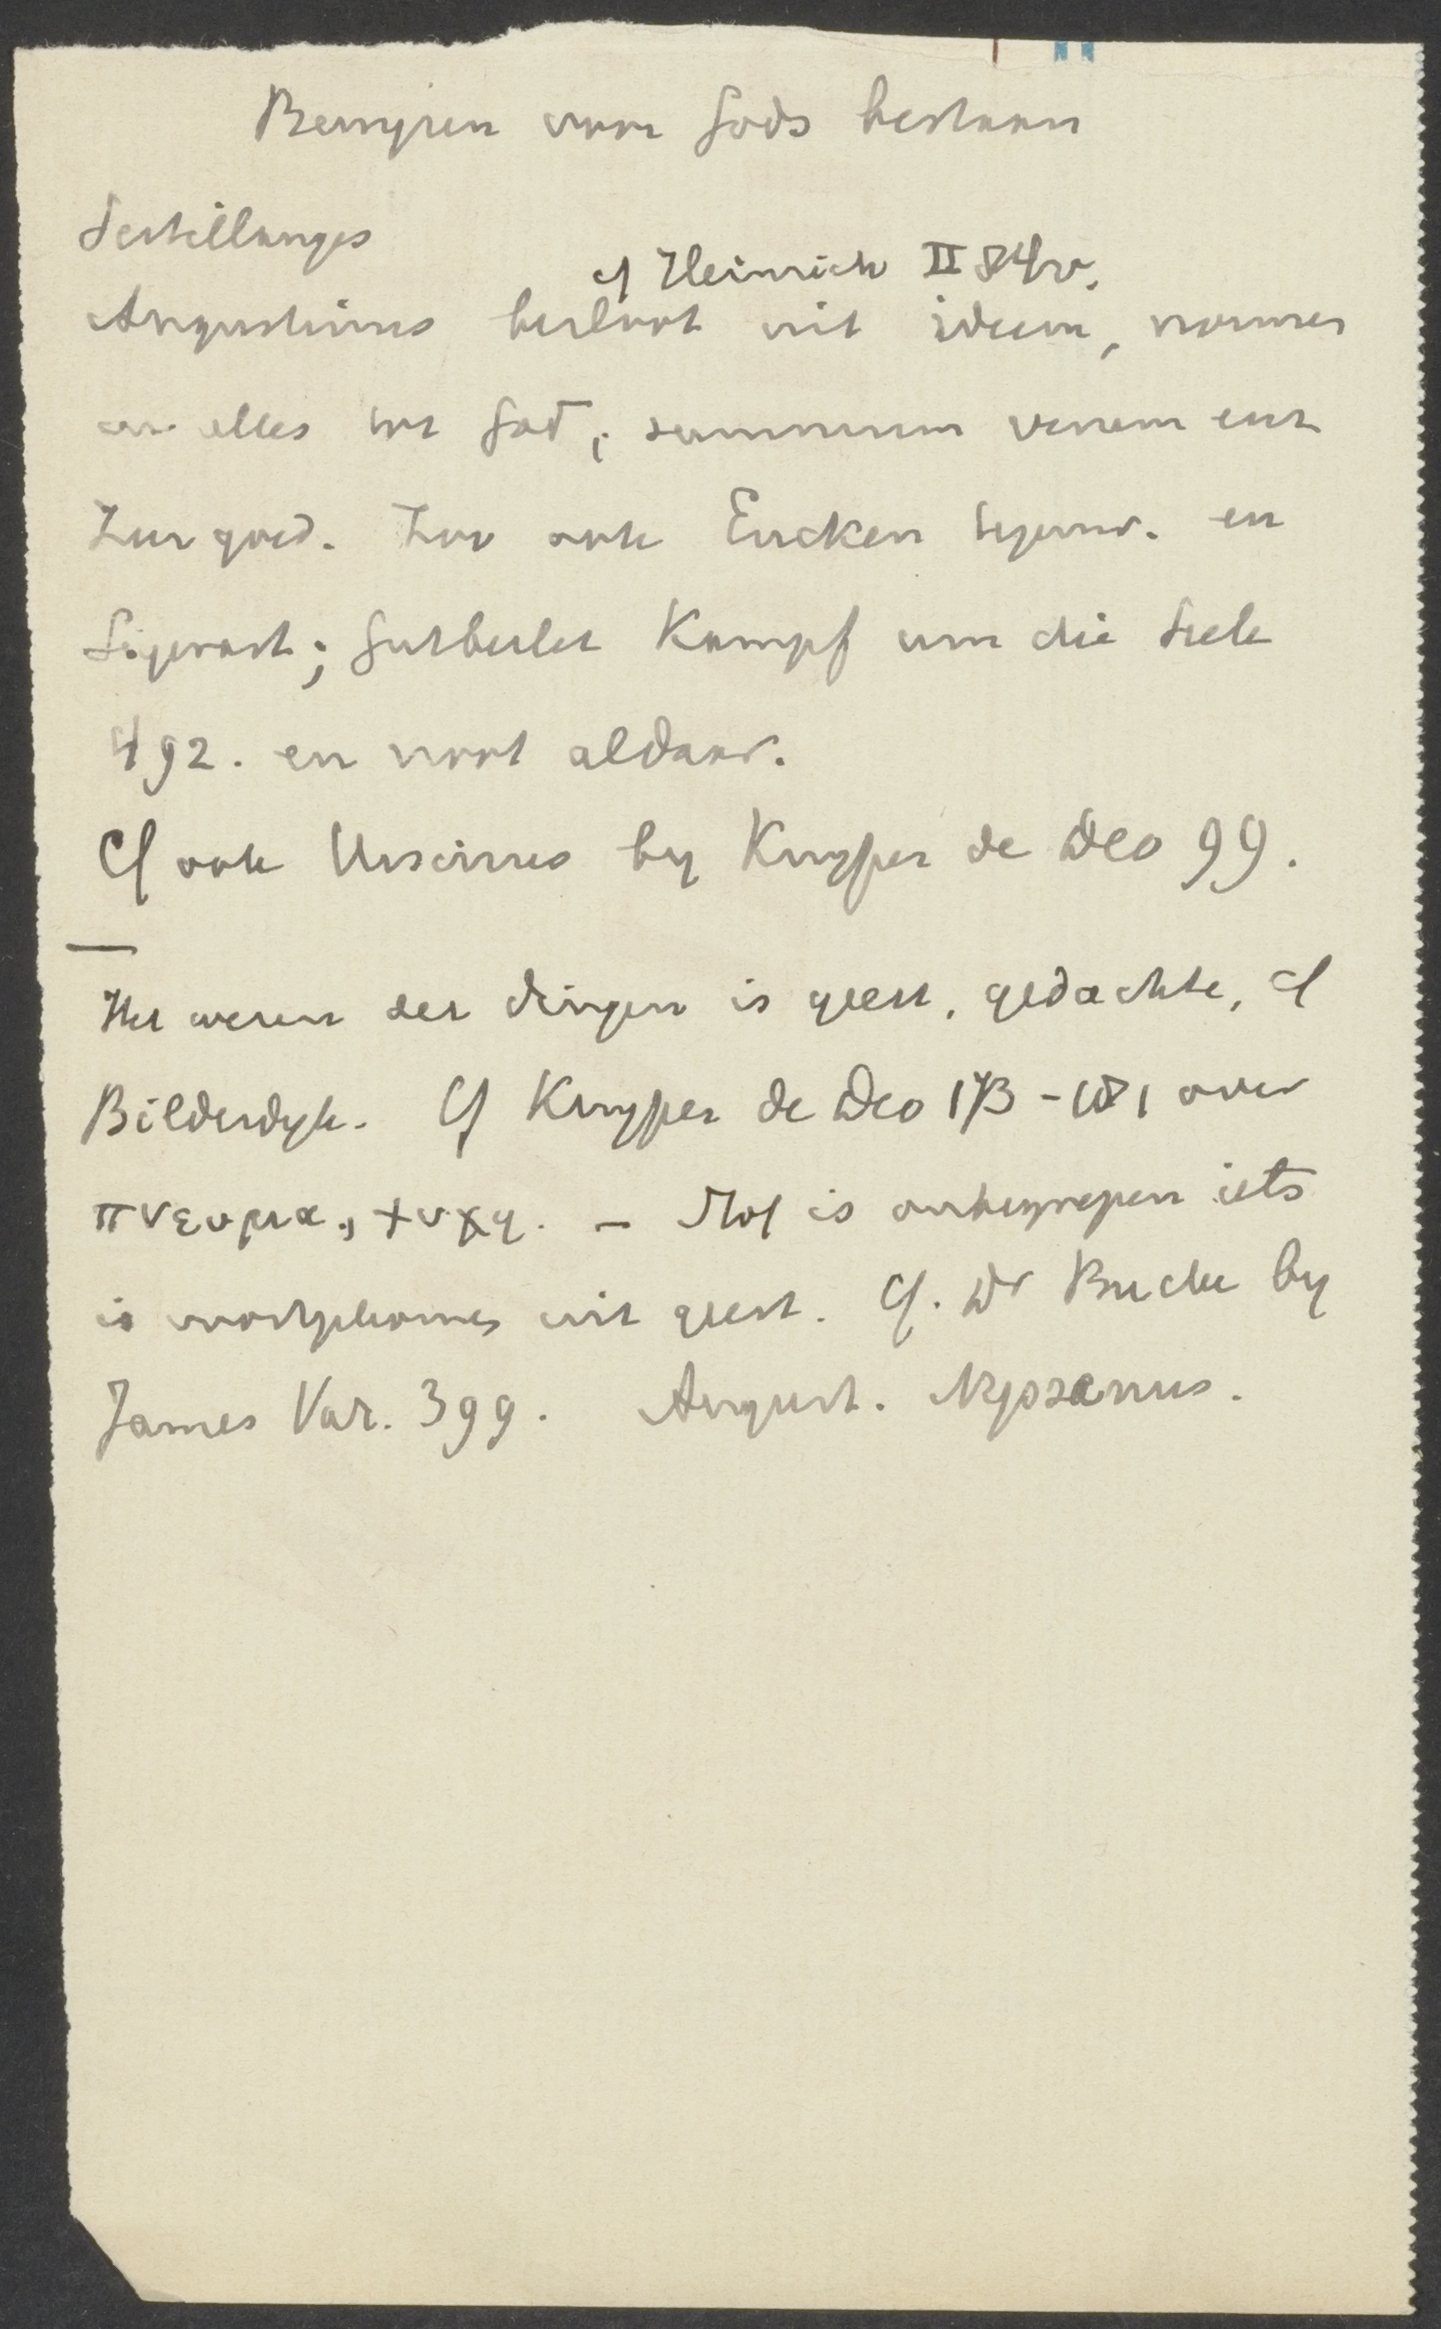 Bewyzen voor Gods bestaan
Sertillanges
cf Heinrich II 84v.
Augustinus besluit uit ideeen, normen
en alles tot God, summum verum est
Zyn goed. Zoo ook Eucken tegenw. en
Sigwart; Gutberlet Kampf um die Seele
492. en noot aldaar.
Cf ook Ursinus by Kuyper de Deo 99.
Het wezen der dingen is geest, gedachte, cf
Bilderdyk. Cf Kuyper de Deo 173-181 over
πνευμα, ψυχη. - Stof is onbegrepen iets
is voortgekomen uit geest. Cf. Dr Bucke by
James Var. 399. August. Nyssanus.